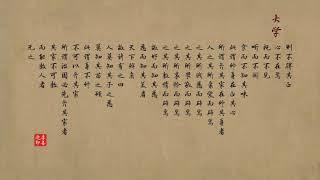 大学
則不得其正
心不在焉
視而不見
聽而不聞
食而不知其味
此謂修身在正其心
所謂齊其家在修其身者
人之其所親愛而辟焉
之其所賤惡而辟焉
之其所畏敬而辟焉
之其所哀矜而辟焉
之其所敖惰而辟焉
故好而知其惡
惡而知其美者
天下鮮矣
故諺有之曰
人莫知其子之惡
莫知其苗之碩
此謂身不修
不可以齊其家
所謂治國必先齊其家者
其家不可教
而能教人者
无之